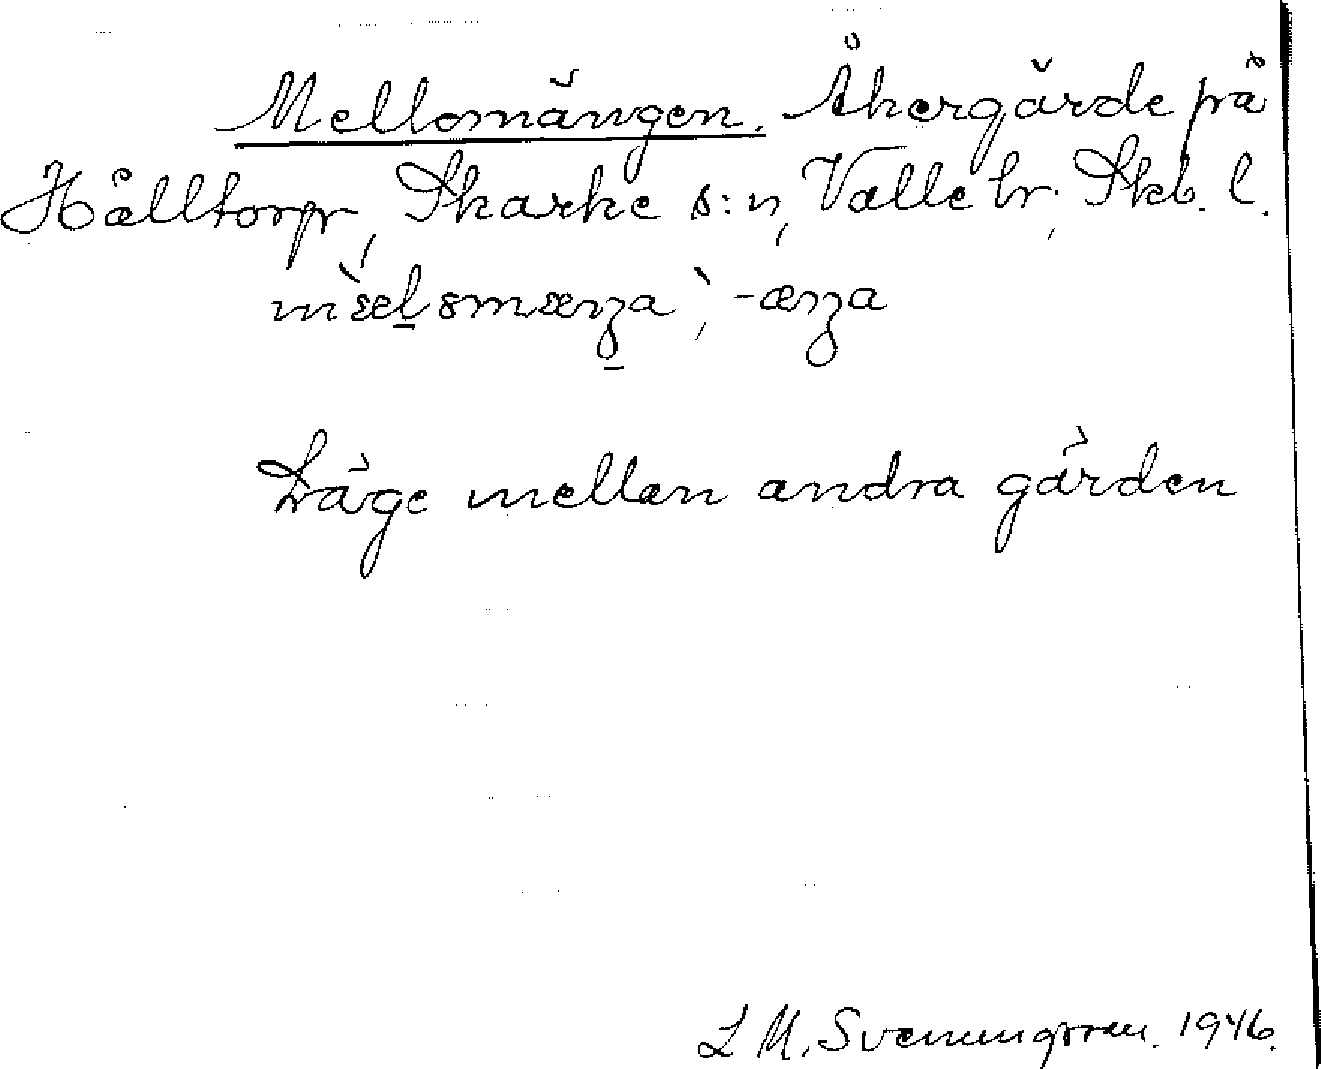 Mellomängen. Åkergärde på
Hålltorp, Skarke s:n, Valle hr, Skb. l.
mèel̠ɵmæŋa`, -æŋa
Läge mellan andra gärden
L M. Svenungsson. 1946.